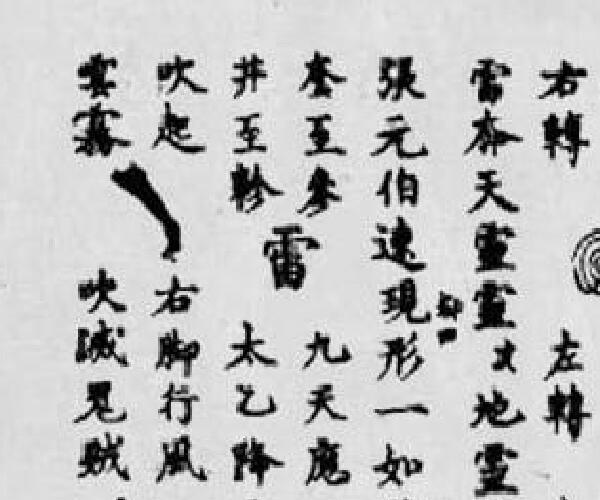 右轉 左轉
雷奔天靈靈 地靈
張元伯速現形一如
奎至參 九天應
井至軫 太乙降
雷
吹起 右脚行風
雲霧 吹滅 賊